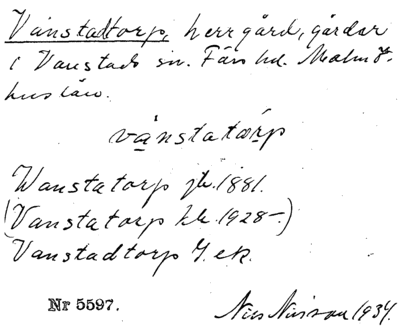 Vanstadtorp, herrgård, gårdar
i Vanstads sn. Färs hd. Malmö-
hus län.
vanstatårp
Wanstatorp jb. 1881.
(Vanstatorp kb. 1928-)
Vanstadtorp J. ek.
Nr 5597.
Nils Nilsson 1934.